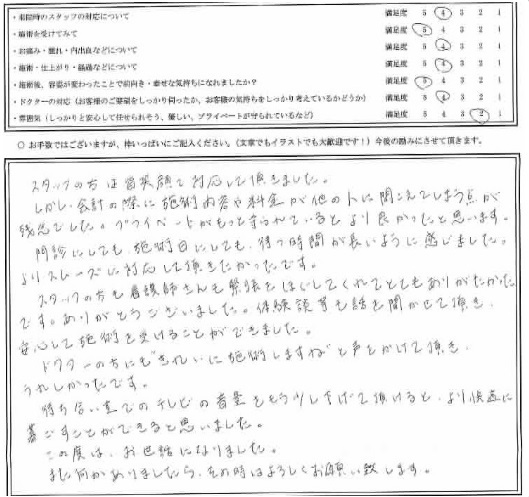 ・来院時のスタッフの対応について 満足度 5 4 3 2 1
・施術を受けてみて 満足度 5 4 3 2 1
・お痛み・腫れ・内出血などについて 満足度 5 4 3 2 1
・施術・仕上がり・経過などについて 満足度 5 4 3 2 1
・施術後、容姿が変わったことで前向き・幸せな気持ちになれましたか？ 満足度 5 4 3 2 1
・ドクターの対応（お客様のご要望をしっかり伺ったか、お客様の気持ちをしっかり考えているかどうか） 満足度 5 4 3 2 1
・雰囲気（しっかりと安心して任せられそう、優しい、プライベートが守られているなど） 満足度 5 4 3 2 1
○ お手数ではございますが、枠いっぱいにご記入ください。（文章でもイラストでも大歓迎です！）今後の励みにさせて頂きます。
スタッフの方は皆笑顔で対応して頂きました。
しかし、会計の際に施術内容や料金が他の人に聞こえてしまう点が
残念でした。プライベートがもっと守られているとより良かったと思います。
問診にしても、施術日にしても、待つ時間が長いように感じました。
よりスムーズに対応して頂きたかったです。
スタッフの方も看護師さんも緊張をほぐしてくれてとてもありがたかった
です。ありがとうございました。体験談等も話を聞かせて頂き、
安心して施術を受けることができました。
ドクターの方にも"きれいに施術しますね"と声をかけて頂き、
うれしかったです。
待ち合い室でのテレビの音量をもう少し下げて頂けると、より快適に
過ごすことができると思いました。
この度は、お世話になりました。
また何かありましたら、その時はよろしくお願い致します。